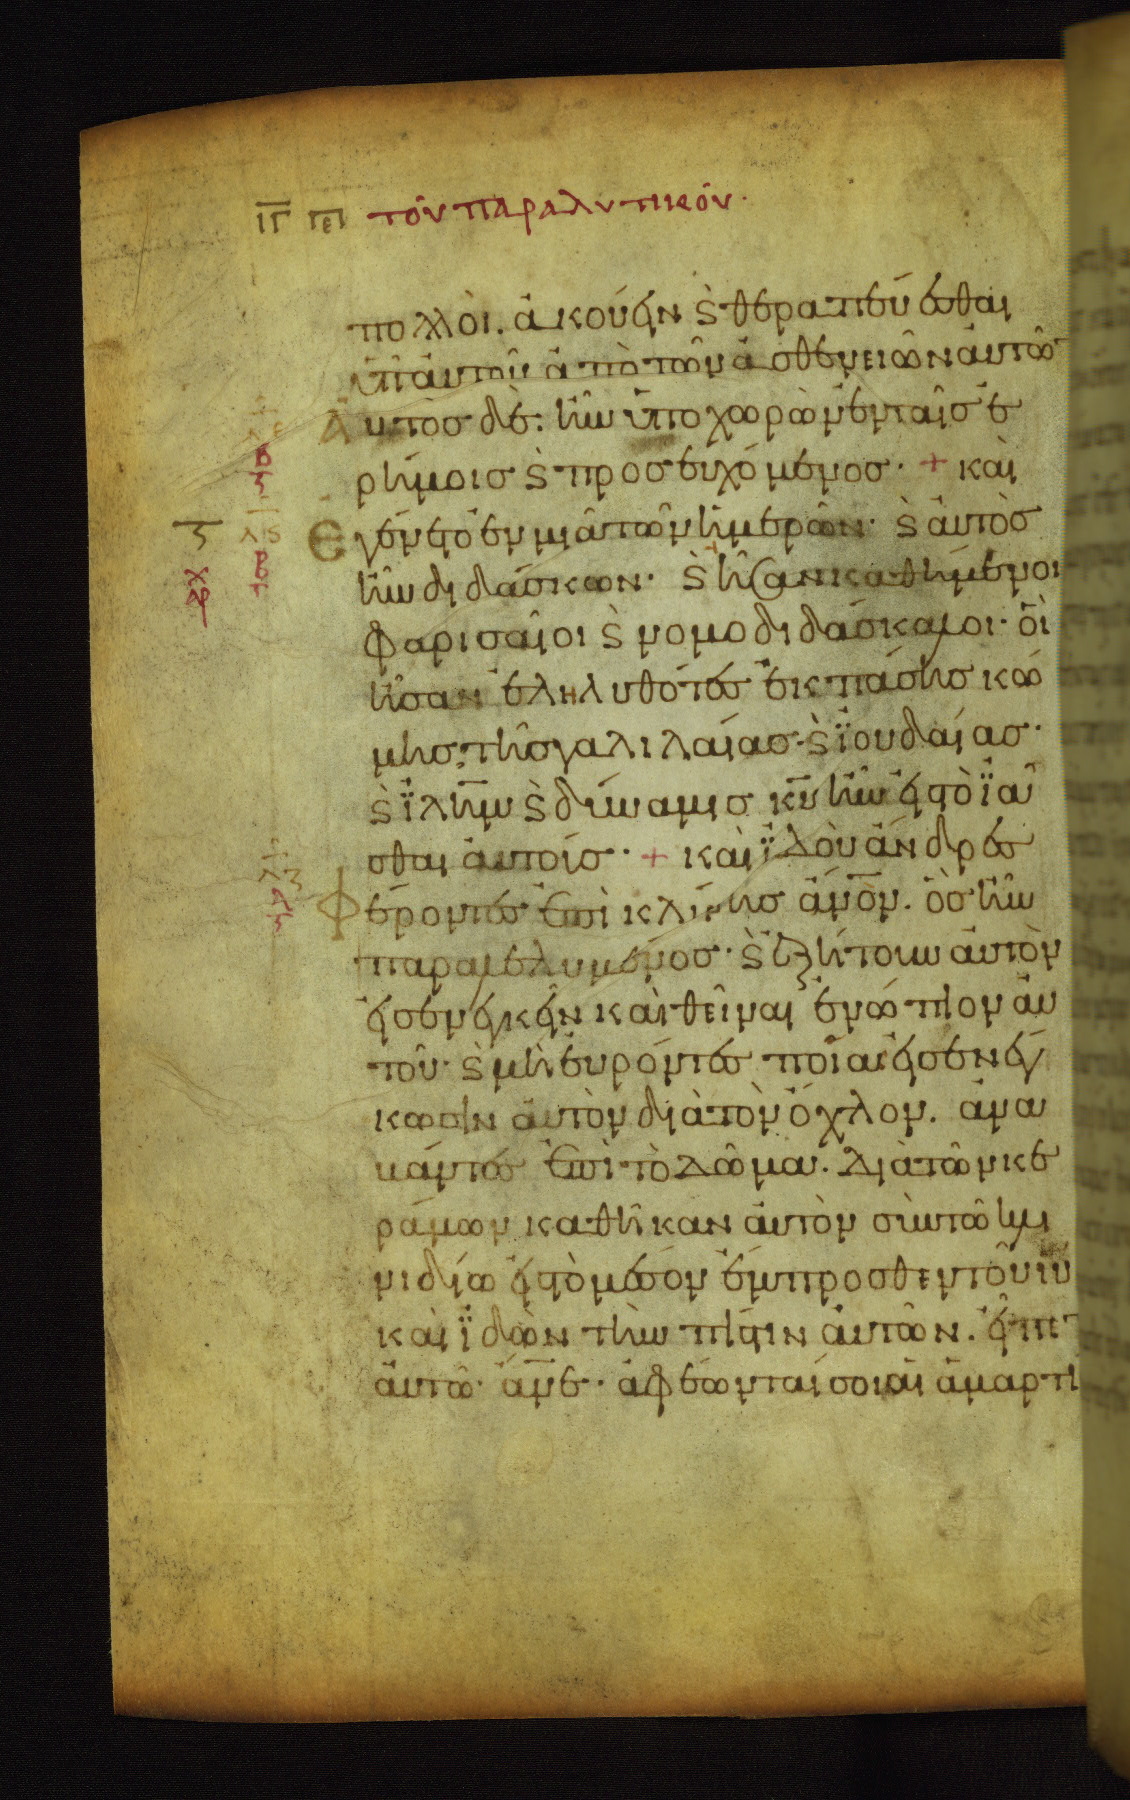 ΙΓ ΠΕΙ τὸν παραλυτικόν·
πολλοὶ. ἀκούειν ϗ θεραπεύεσθαι
ὑπ᾽ αὐτοῦ ἀπὸ τῶν ἀσθενειῶν αὐτῶ
Αὐτὸς δὲ. ἦν ὑποχωρῶν ἐν ταῖς ἐ
ρήμοις ϗ προσευχόμενος· + καὶ
Ἐγένετο ἐν μιᾶ τῶν ἡμερῶν· ϗ αὐτὸς
ἦν διδάσκων· ϗ ἦσαν καθήμενοι
φαρισαῖοι ϗ νομοδιδάσκαλοι· οἳ
ἦσαν ἐληλυθότες ἐκ πάσης κώ
μης τῆς γαλιλαίας· ϗ ϊουδαίας·
ϗ ϊλημ ϗ δύναμις κυ ἦν εἰς τὸ ϊᾶ
σθαι αὐτούς· + καὶ ϊδοὺ ἄνδρες
Φέροντες ἐπὶ κλίνης ἄνον. ὃς ἦν
παραλελυμένος· ϗ ἐζήτουν αὐτὸν
εἰσενεγκεῖν καὶ θεῖναι ἐνώπιον αὐ
τοῦ· ϗ μὴ εὑρόντες ποίας εἰσενέγ
κωσιν αὐτὸν διὰ τὸν ὄχλον. ἀνα
βάντες ἐπὶ τὸ δῶμα. διὰ τῶν κε
ράμων καθῆκαν αὐτὸν σὺν τῶ κλι
νιδίω εἰς τὸ μέσον ἔμπροσθεν τοῦ ιυ
καὶ ϊδὼν τὴν πίστιν αὐτῶν. εἶπε
αὐτῶ· ἄνε· ἀφέωνταί σοι αἱ ἁμαρτί